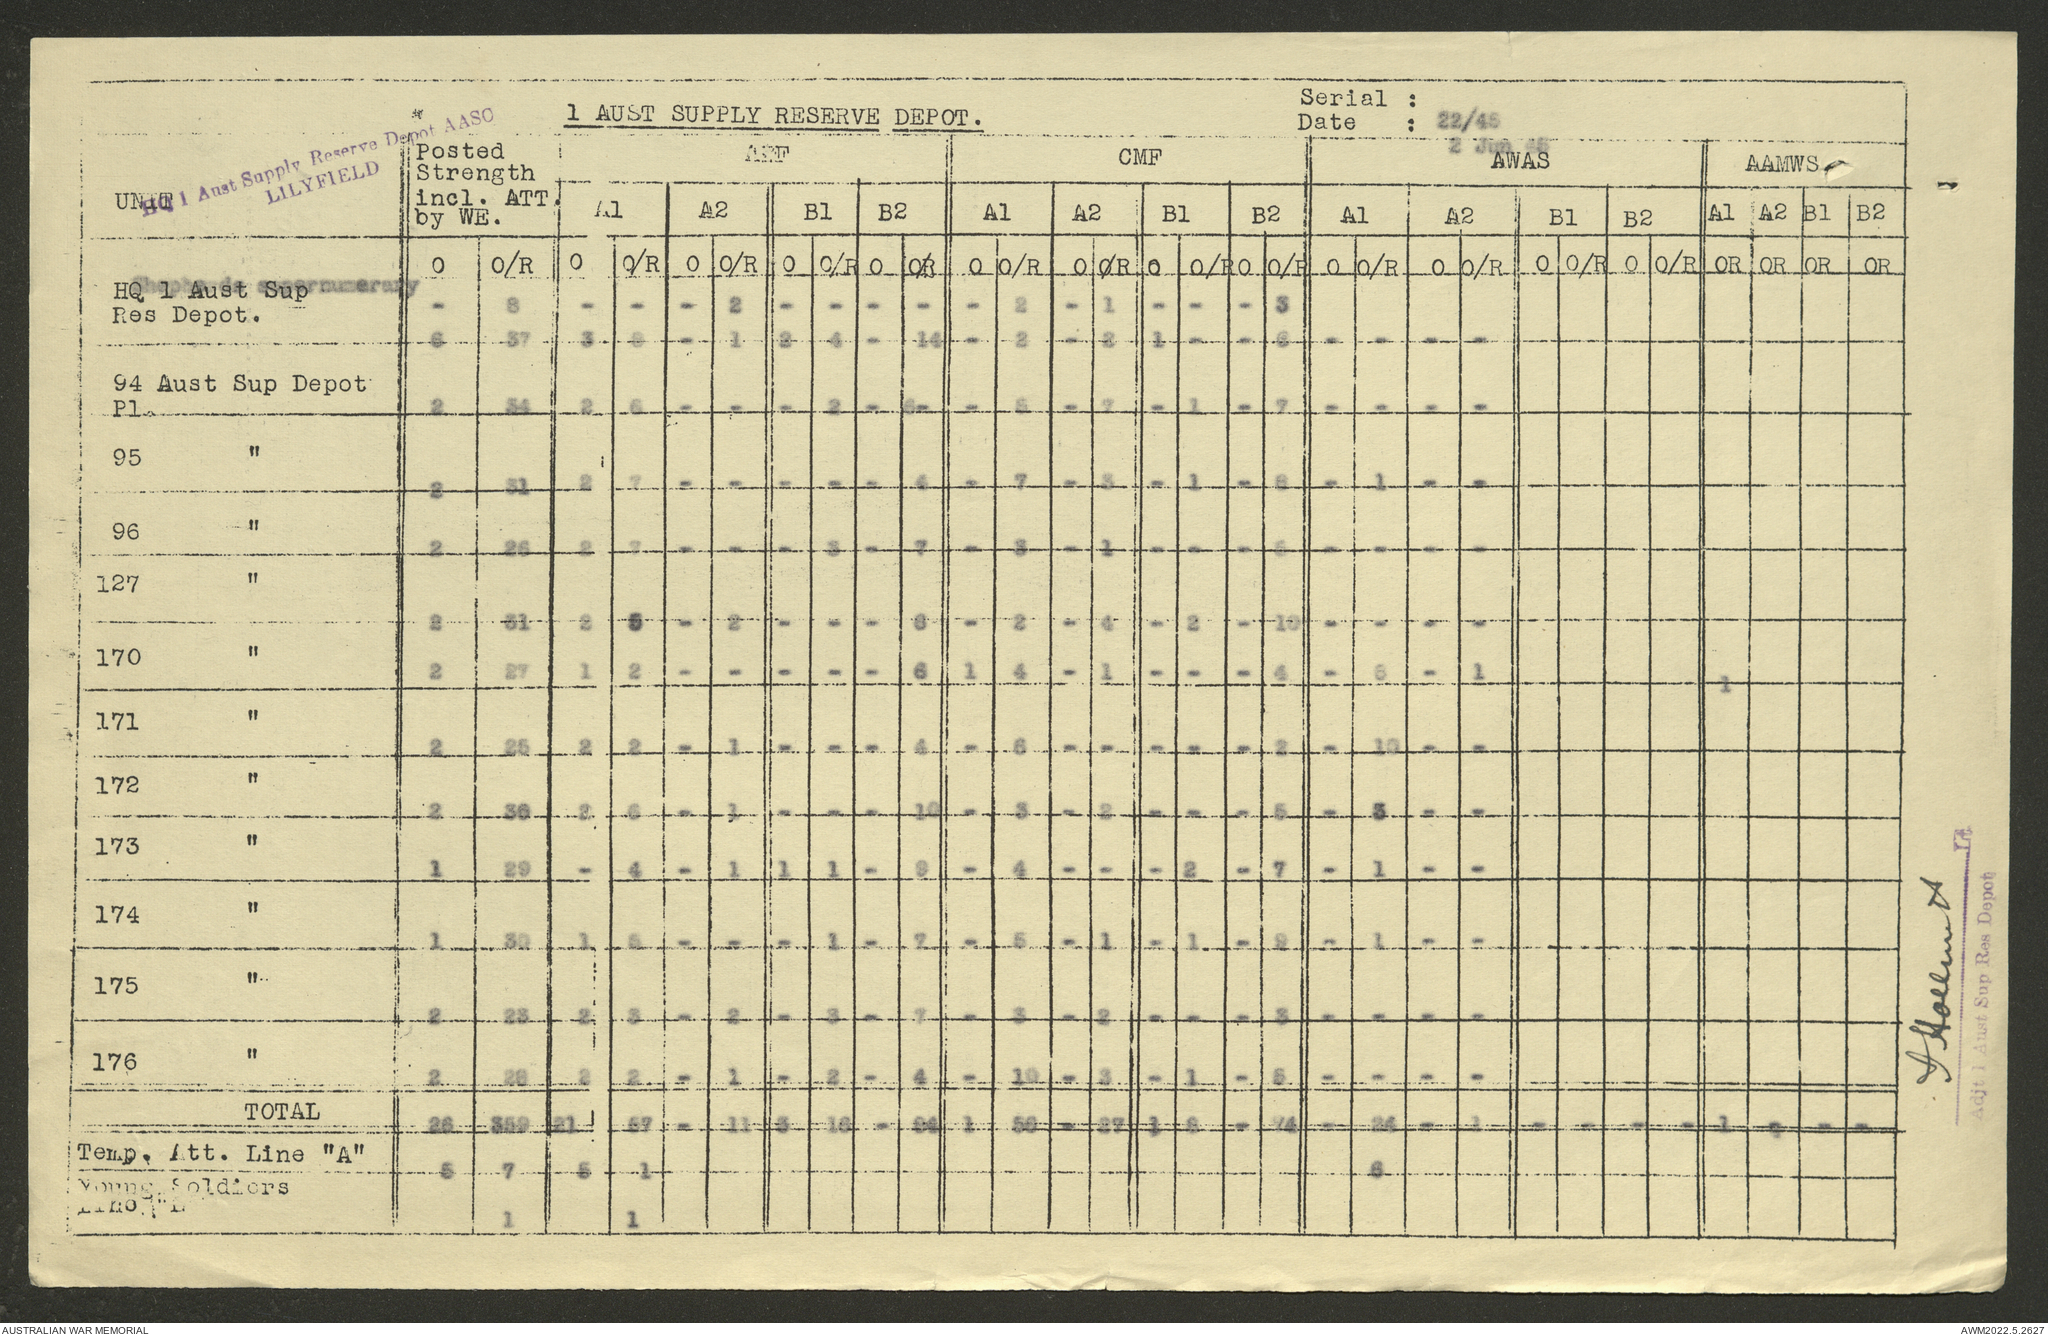 1 AUST SUPPLY RESERVE DEPOT.
Serial : 22/45
Date : 2 Jun 45
HQ 1 Aust Supply Reserve Depot AASC
LILYFIELD
UNIT
Posted
Strength
incl. ATT.
by WE.
AIF CMF AWAS AAMWS
A1 A2 B1 B2 A1 A2 B1 B2 A1 A2 B1 B2 A1 A2 B1 B2
O O/R O O/R O O/R O O/R O OR O O/R O O/R O O/R O O/R O O/R O O/R O O/R O O/R OR OR OR OR
supernumerary
HQ 1 Aust Sup - 8 - - - 2 - - - - - 2 - 1 - - - 3
Res Depot.
6 37 3 - 1 2 4 - 14 - 2 - 2 1 - - 6 - - - -
94 Aust Sup Depot
Pl. 2 34 2 6 - - - 2 - 6- - 5 - 7 - 1 - 7 - - - -
95 " 2 31 2 7 - - - - - 4 - 7 - - 1 - - 1 - -
96 " 2 26 2 7 - - - 3 - 7 - 3 - 1 - - - - - - -
127 " 2 31 2 5 - 2 - - - 8 - 2 - 4 - 2 - 10 - - - -
170 " 2 27 1 2 - - - - - 6 1 4 - 1 - - - 4 - - 1 1
171 " 2 25 2 2 - 1 - - - 4 - 6 - - - - - 2 - 10 - -
172 " 2 36 2 6 - 1 - - - 10 - 3 - 2 - - - 5 - 3 - -
173 " 1 29 - 4 - 1 1 1 - 9 - 4 - - - 2 - 7 - 1 - -
174 " 1 30 1 5 - - - 1 - 7 - 5 - 1 - 1 - 9 - 1 - -
175 " 2 23 2 3 - 2 - 3 - 7 - 3 - 2 - - - 3 - - - -
176 " 2 28 2 2 - 1 - 2 - 4 - 10 - 3 - 1 - 5 - - - -
TOTAL 26 359 21 57 - 11 3 16 - 84 1 56 - 27 1 8 - 74 - 24 - 1 - - - - 1 - -
Temp. Att. Line "A" 5 7 5 1 6
Young Soldiers
1 1
Lt
Adjt 1 Aust Sup Res Depot
AUSTRALIAN WAR MEMORIAL
AWM2022.5.2627